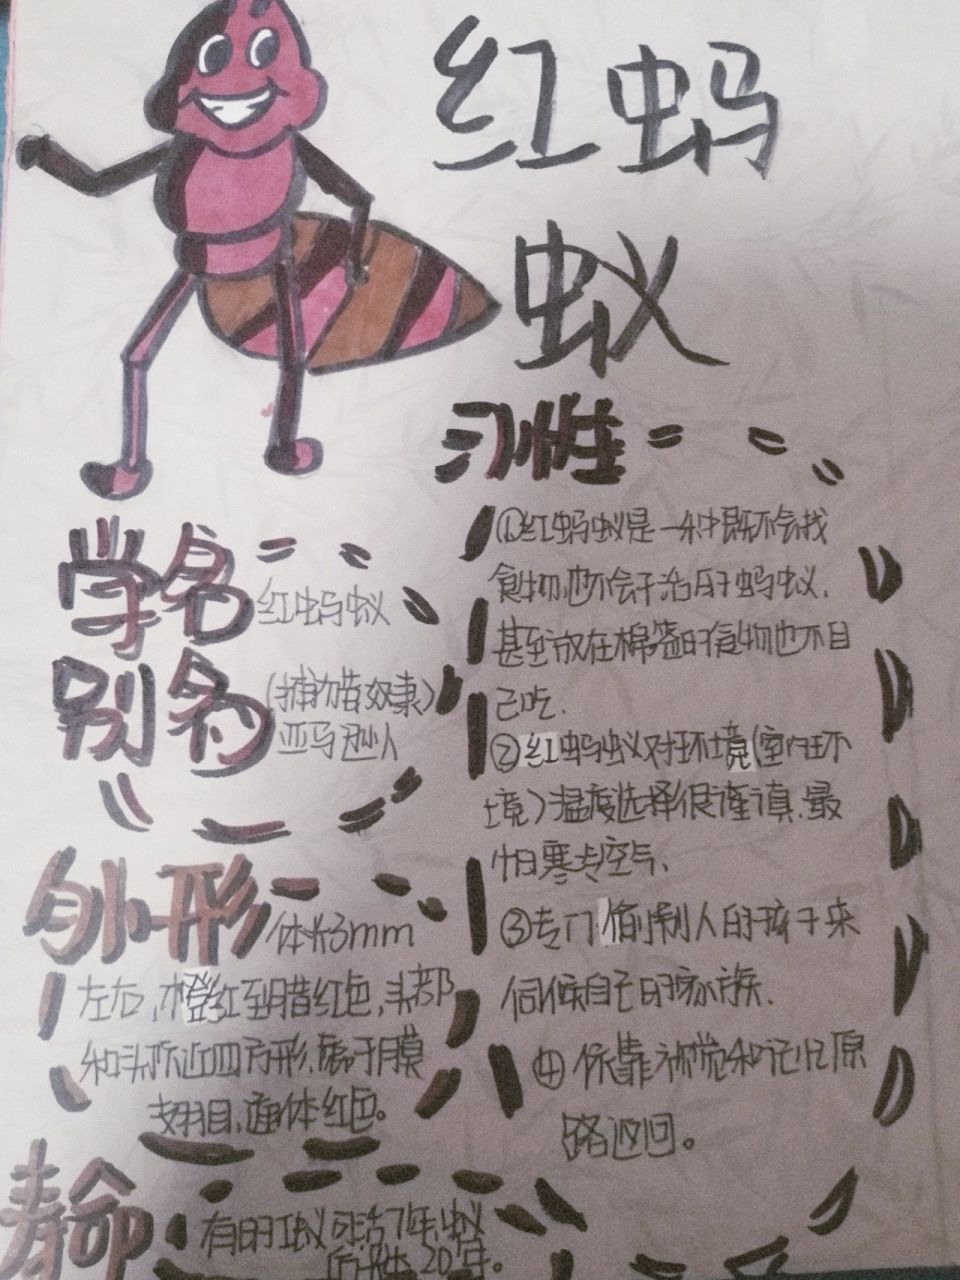 红蚂
蚁
习性
①红蚂蚁是一种既不会找
食物,也不会干活的蚂蚁.
甚至放在棉签的食物也不自
己吃.
②红蚂蚁对环境(室内环
境)温度选择很谨慎.最
怕寒冷空气.
③专门偷别人的孩子来
伺候自己的家族.
④依靠视觉和记忆原
路返回。
学名
红蚂蚁
别名
(捕猎奴隶)
亚马逊人
外形
体长3mm
左右,橙红至暗红色,头部
和头状近四方形,属于膜
翅目,通体红色。
寿命
有的工蚁可活7年,蚁
后 20年。